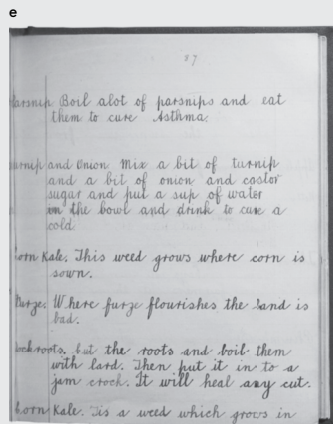 e
87
Parsnip Boil alot of parsnips and eat
them to cure Asthma.
urnip and Onion Mix a bit of turnip
and a bit of onion and castor
sugar and put a sup of water
in the bowl and drink to cure a
cold
Corn Kale. This weed grows where corn is
sown.
Furze. Where furze flourishes the land is
bad.
ock roots. Cut the roots and boil them
with lard. Then put it in to a
jam crock. It will heal any cut.
Corn Kale. Tis a weed which grows in